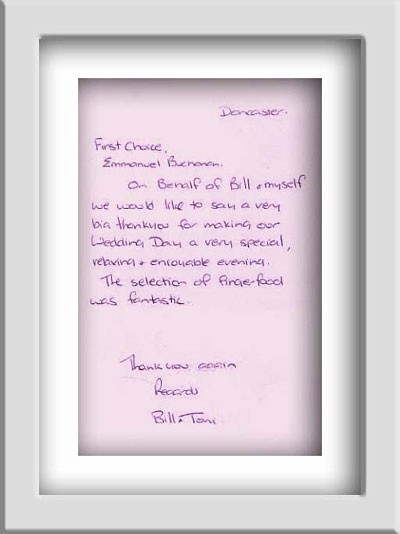 Doncaster.
First Choice,
Emmanuel Buchanan.
On Behalf of Bill & myself
we would like to say a very
big thankyou for making our
Wedding Day a very special,
relaxing & enjoyable evening.
The selection of fingerfood
was fantastic.
Thank you again
Regards
Bill & Toni